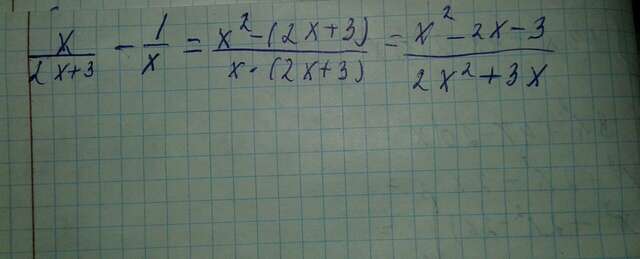 x/(2x+3) - 1/x = (x² - (2x+3))/(x · (2x+3)) = (x² - 2x - 3)/(2x² + 3x)